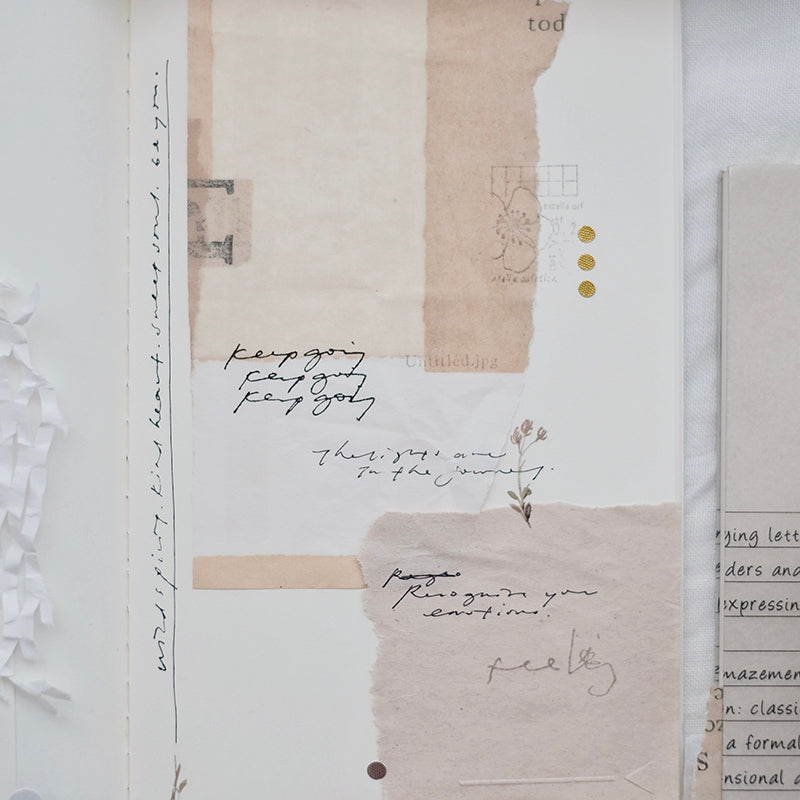 tod
wild spirit. kind heart. sweet soul. be you.
E
Keep going
Keep going
Keep going
Untitled.jpg
The lights are
in the journey.
Recognize your
emotions.
feeling
ying lett
ders and
expressin
mazemen
n: classi
a formal
S
nsional a